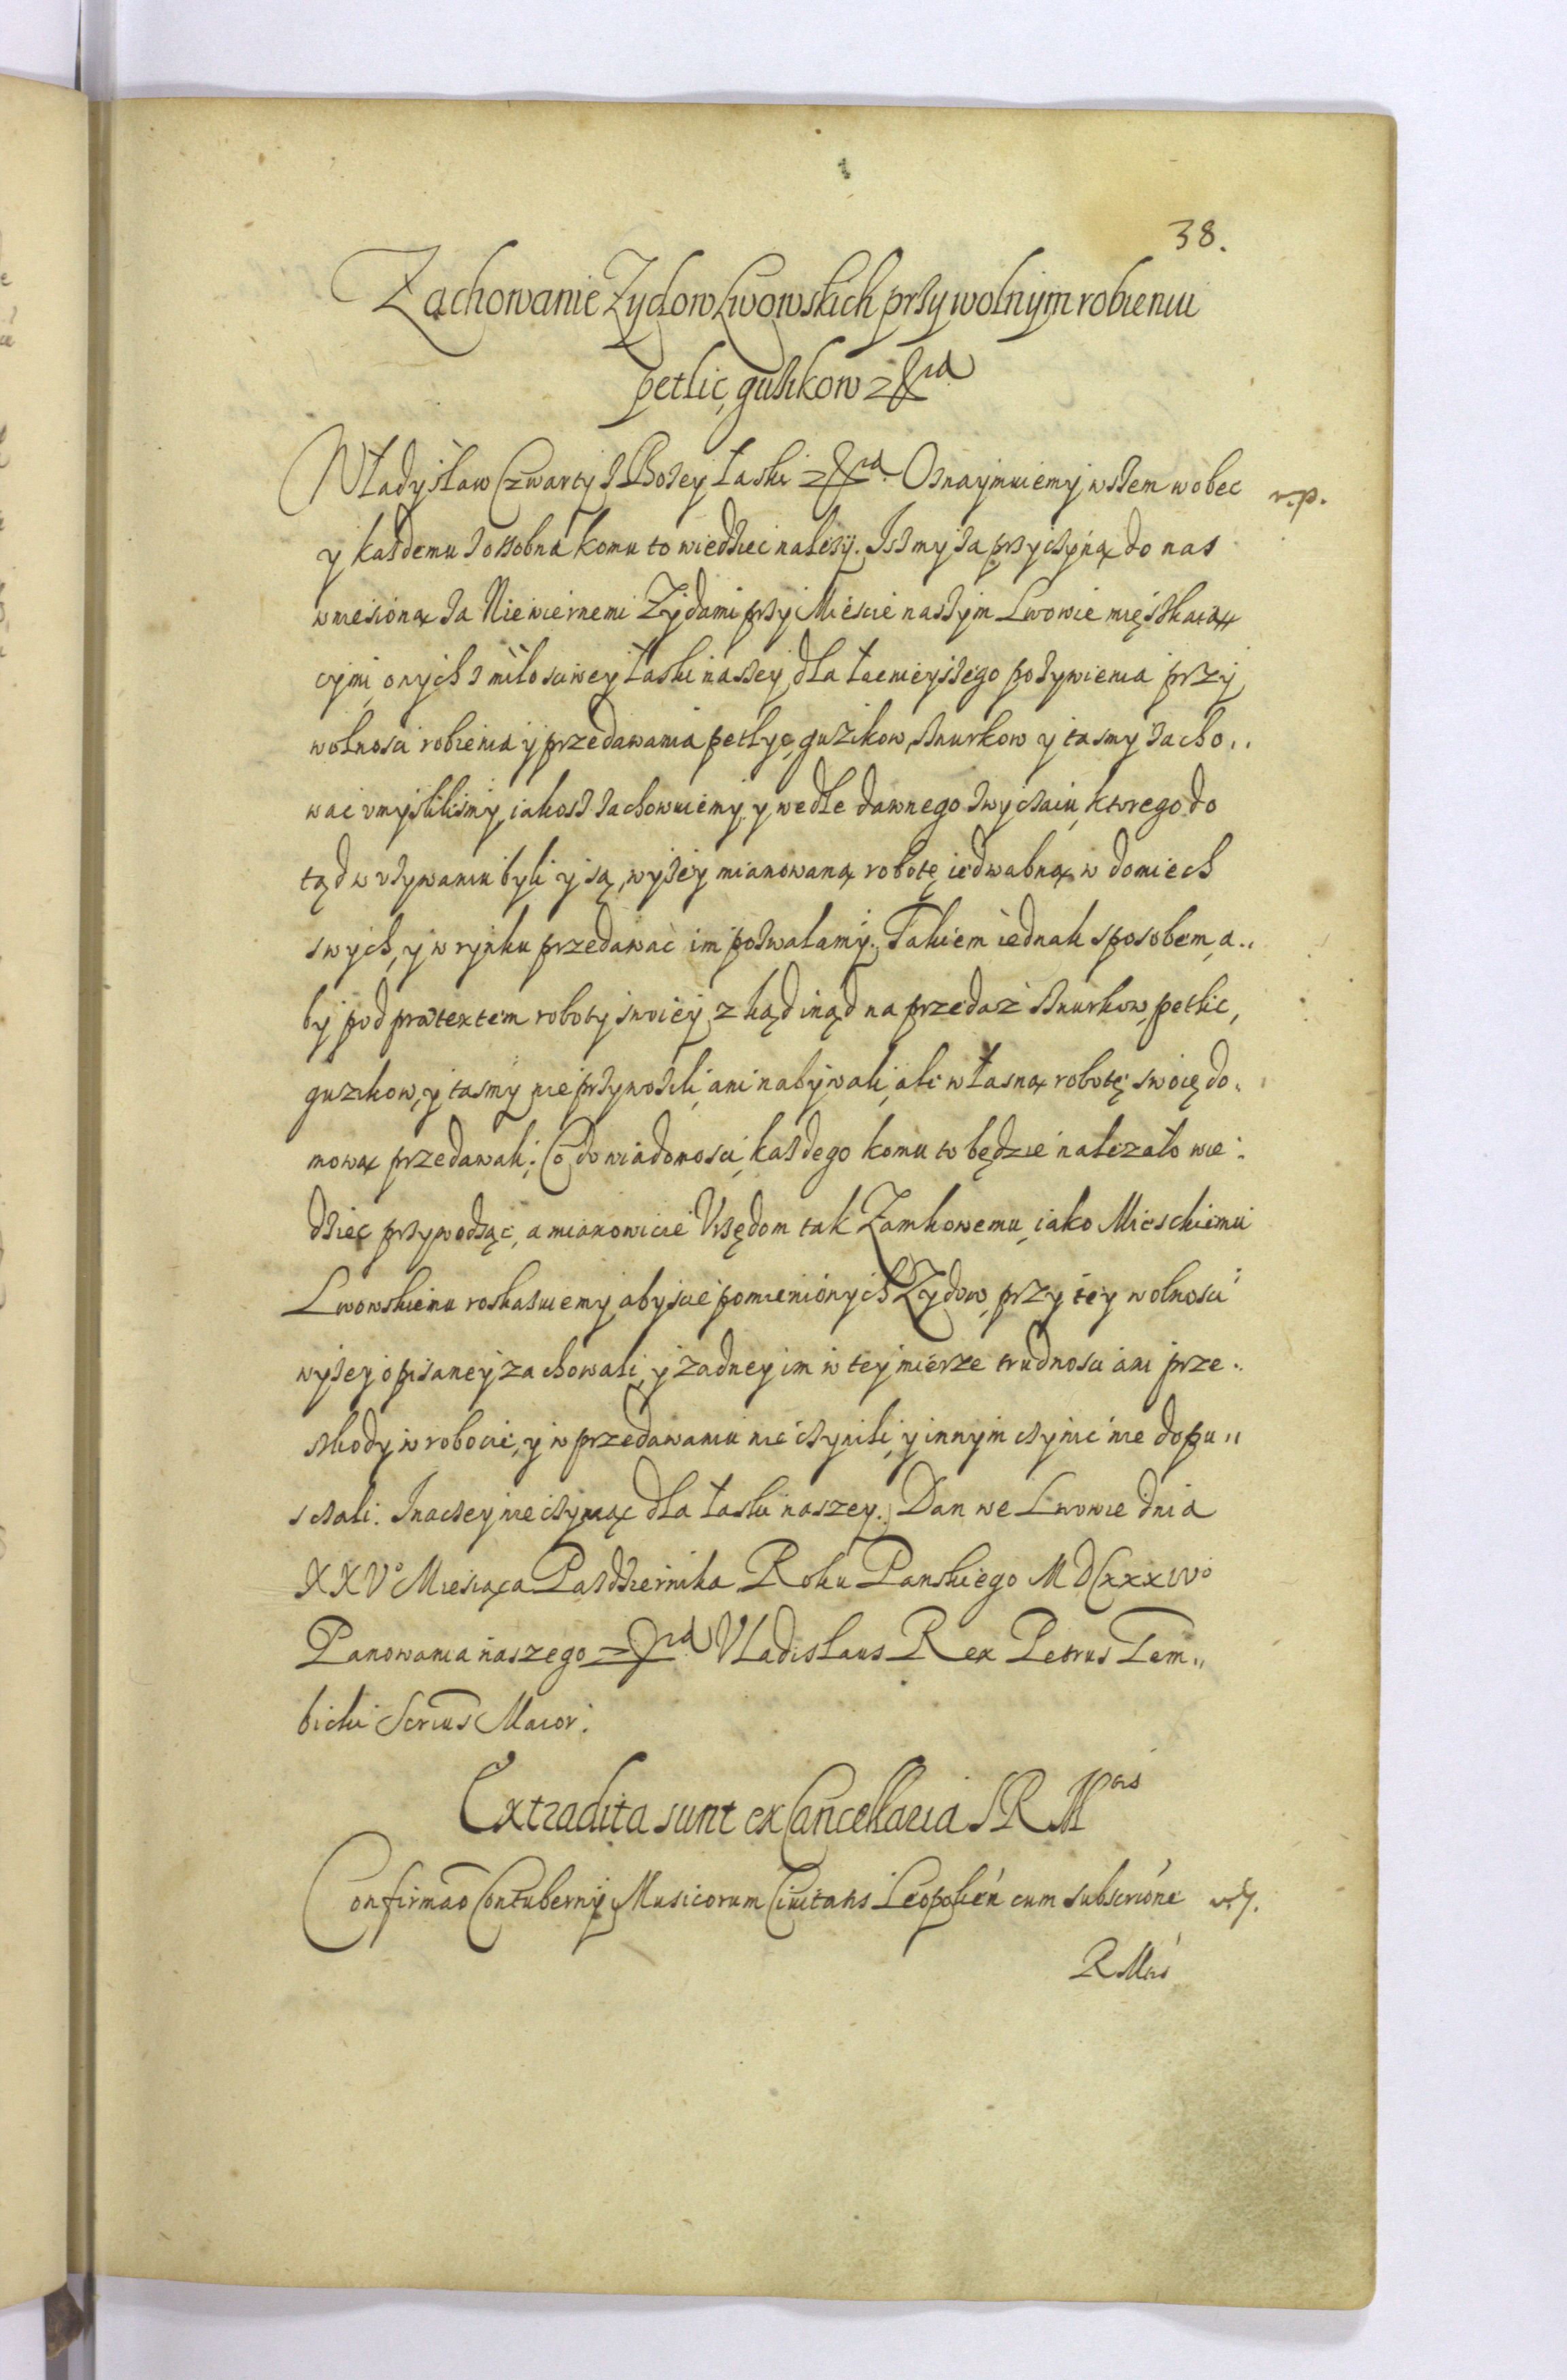 38.
Zachowanie Zydow Lwowskich przy wolnym robieniu
petlic, guzikow etc.
Władysław Czwarty z Bozey łaski etc. Oznaymuiemy wszem wobec r.p.
y kazdemu zosobna komu to wiedziec nalezy. Iszmy za przyczyną do nas
wniesioną za Niewiernemi Zydami przy Miescie naszym Lwowie mięszkaią//
cymi, onych z miłosciwey łaski naszey, dla łacnieyszego pozywienia przy
wolnosci robienia y przedawania petlyc, guzikow, sznurkow y tasmy zacho„
wac vmyslilismy, iakosz zachowuiemy, y wedle dawnego zwyczaiu, ktorego do
tąd w vzywaniu byli y są, wyzey mianowaną robotę iedwabną w domiech
swych, y w rynku przedawac im pozwalamy. Takiem iednak sposobem, a„
by pod prætextem roboty swoiey, z kąd inąd na przedaz sznurkow, petlic,
guzikow, y tasmy nie przywozili, ani nabywali, ale własną robotę swoię do„
mową przedawali. Co do wiadomosci kazdego komu to będzie nalezało wie„
dziec przywodząc, a mianowicie Vrzędom tak Zamkowemu, iako Mieschiemu
Lwowskiemu roskazuiemy, abyscie pomienionych Zydow, przy tey wolnosci
wyzey opisaney zachowali, y zadney im w tey mierze trudnosci ani prze„
szkody w robocie, y w przedawaniu nie czynili, y innym czynic nie dopu„
sczali. Inaczey nie czyniąc dla łaski naszey. Dan we Lwowie dnia
XXVo Miesiąca Pazdziernika Roku Panskiego MDCxxxIVo
Panowania naszego etc. Vladislaus Rex Petrus Gem„
bicki Scrius Maior.
Extradita sunt ex Cancellaria S R Mtis
Confirmao Contubernij Musicorum Ciuitatis Leopolien cum subscrione
R Mtis